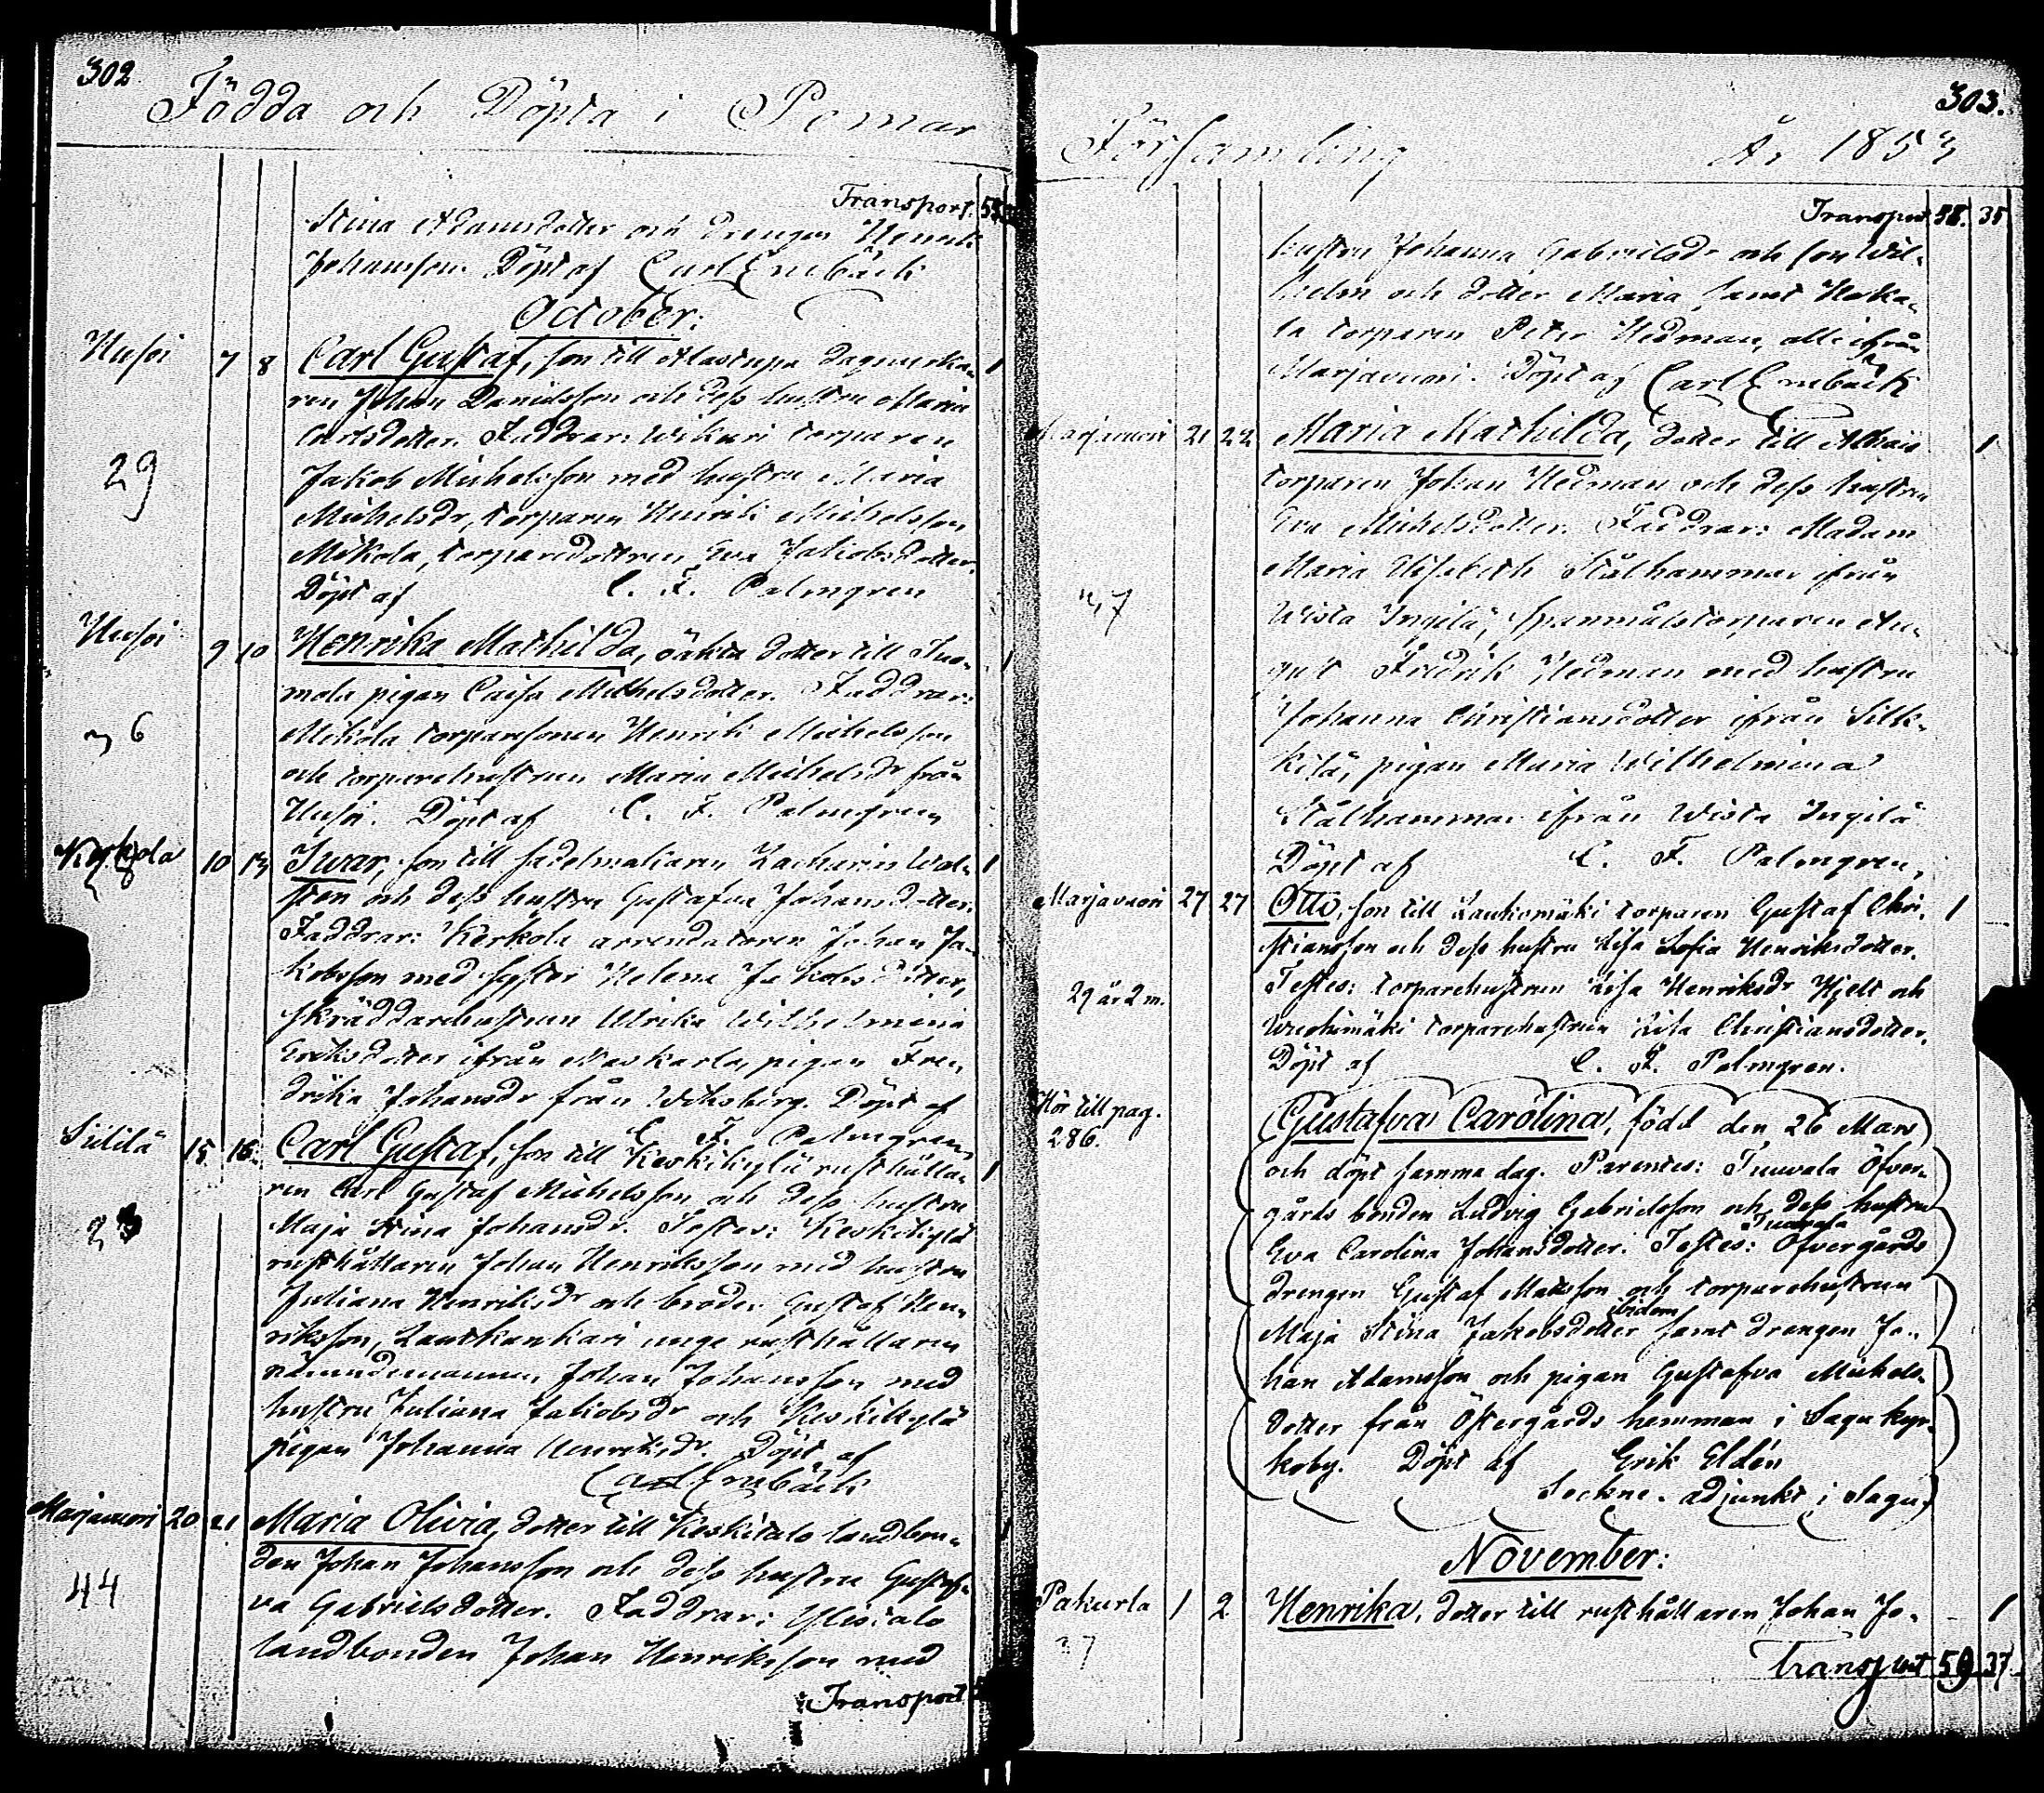 302
Födda och Döpta i Pemar
Transport.
Stina Adamsdotter och drengen Henrik
Johansson. Döpt af Carl Enebäck
October:
Husoi 7 8 Carl Gustaf, son till Alastupa dagsverka- 1
ren Johan Danielsson och dess hustru Maria
Carlsdotter. Faddrar: Wikari torparen
29
Jakob Michelsson med hustru Maria
Michelsdr, torparen Henrik Michelsson
Mikola, torparedottren Eva Jakobsdotter.
Döpt af C. F. Palmgren
Husoi 9 10 Henrika Mathilda, oäkta dotter till Tuo- 1
mola pigan Caisa Michelsdotter. Faddrar:
36
Mikola torparsonen Henrik Michelsson
och torparehustrun Maria Michelsdr från
Husoi. Döpt af C. F. Palmgren
Kerkola 10 13 Iwar, son till sadelmakaren Zacharias Wal- 1
sten och dess hustru Gustafva Johansdotter.
Faddrar: Kerkola arrendatoren Johan Ja-
kobsson med syster Helena Jakobsdotter,
skräddarehustrun Ulrika Wilhelmina
Eriksdotter ifrån Naskarla, pigan Fre-
drika Johansdr från Wiksberg. Döpt af
C. F. Palmgren
15 16 Carl Gustaf, son till Keskikylä rusthålla- 1
ren Carl Gustaf Michelsson och dess hustru
Maja Stina Johansdr. Testes: Keskikylä
rusthållaren Johan Henriksson med hustru
Juliana Henriksdr och broder Gustaf Hen-
riksson, Lautkankari unge rusthållaren
nämndemannen Johan Johansson med
hustru Juliana Jakobsdr och Keskikylä
pigan Johanna Henriksdr. Döpt af
Carl Enebäck
Marjavuori 20 21 Maria Olivia, dotter till Keskitalo landbon- 1
den Johan Johansson och dess hustru Gustaf-
44
va Gabrielsdotter. Faddrar: Ylistalo
landbonden Johan Henriksson med
Transport
303.
Församling År 1853
Transport 58. 35
hustru Johanna Gabrielsdr och son Wil-
helm och dotter Maria, samt Haka-
la torparen Peter Hedman, alle ifrån
Marjavuori. Döpt af Carl Enebäck
Marjavuori 21 22 Maria Mathilda, dotter till 1
torparen Johan Hedman och dess hustru
Eva Michelsdotter. Faddrar: Madam
Maria Elisabeth Stålhammar ifrån
37
Wista Ingilä, Spannmålstorparen Au-
gust Fredrik Hedman med hustru
Johanna Christiansdotter ifrån Silk-
kilä, pigan Maria Wilhelmina
Stålhammar ifrån Wista Ingilä
Döpt af C. F. Palmgren,
Marjavuori 27 27 Otto, son till Laukomäki torparen Gustaf Chri- 1
stiansson och dess hustru Lisa Sofia Henriksdotter.
29 år 2 m.
Testes: torparehustrun Lisa Henriksdr Hjelt och
Wuohimäki torparehustrun Lisa Christiansdotter.
Döpt af C. F. Palmgren.
Hör till pag.
286.
Gustafva Carolina, född den 26 Mars
och döpt samma dag. Parentes: Tuuvala Öfver-
gårds bonden Ludvig Gabrielsson och dess hustru
Eva Carolina Johansdotter. Testes: Tuuvala Öfvergårds
drengen Gustaf Matsson och torparehustrun
Maja Stina Jakobsdotter ibidem samt drengen Jo-
han Adamsson och pigan Gustafva Mickels-
dotter från Östergårds hemman i Sagu kyr-
koby. Döpt af Erik Eldén
Sockne-adjunkt i Sagu.
November:
Pakurla 1 2 Henrika, dotter till rusthållaren Johan Jo- 1
37
Transport 59 37